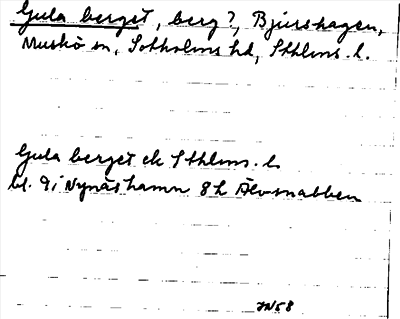 Gula berget, berg?, Bjurshagen,
Muskö sn, Sotholms hd, Sthlms. l.
Gula berget ek Sthlms. l.
bl. 9i Nynäshamn 8h Älvsnabben
IN58